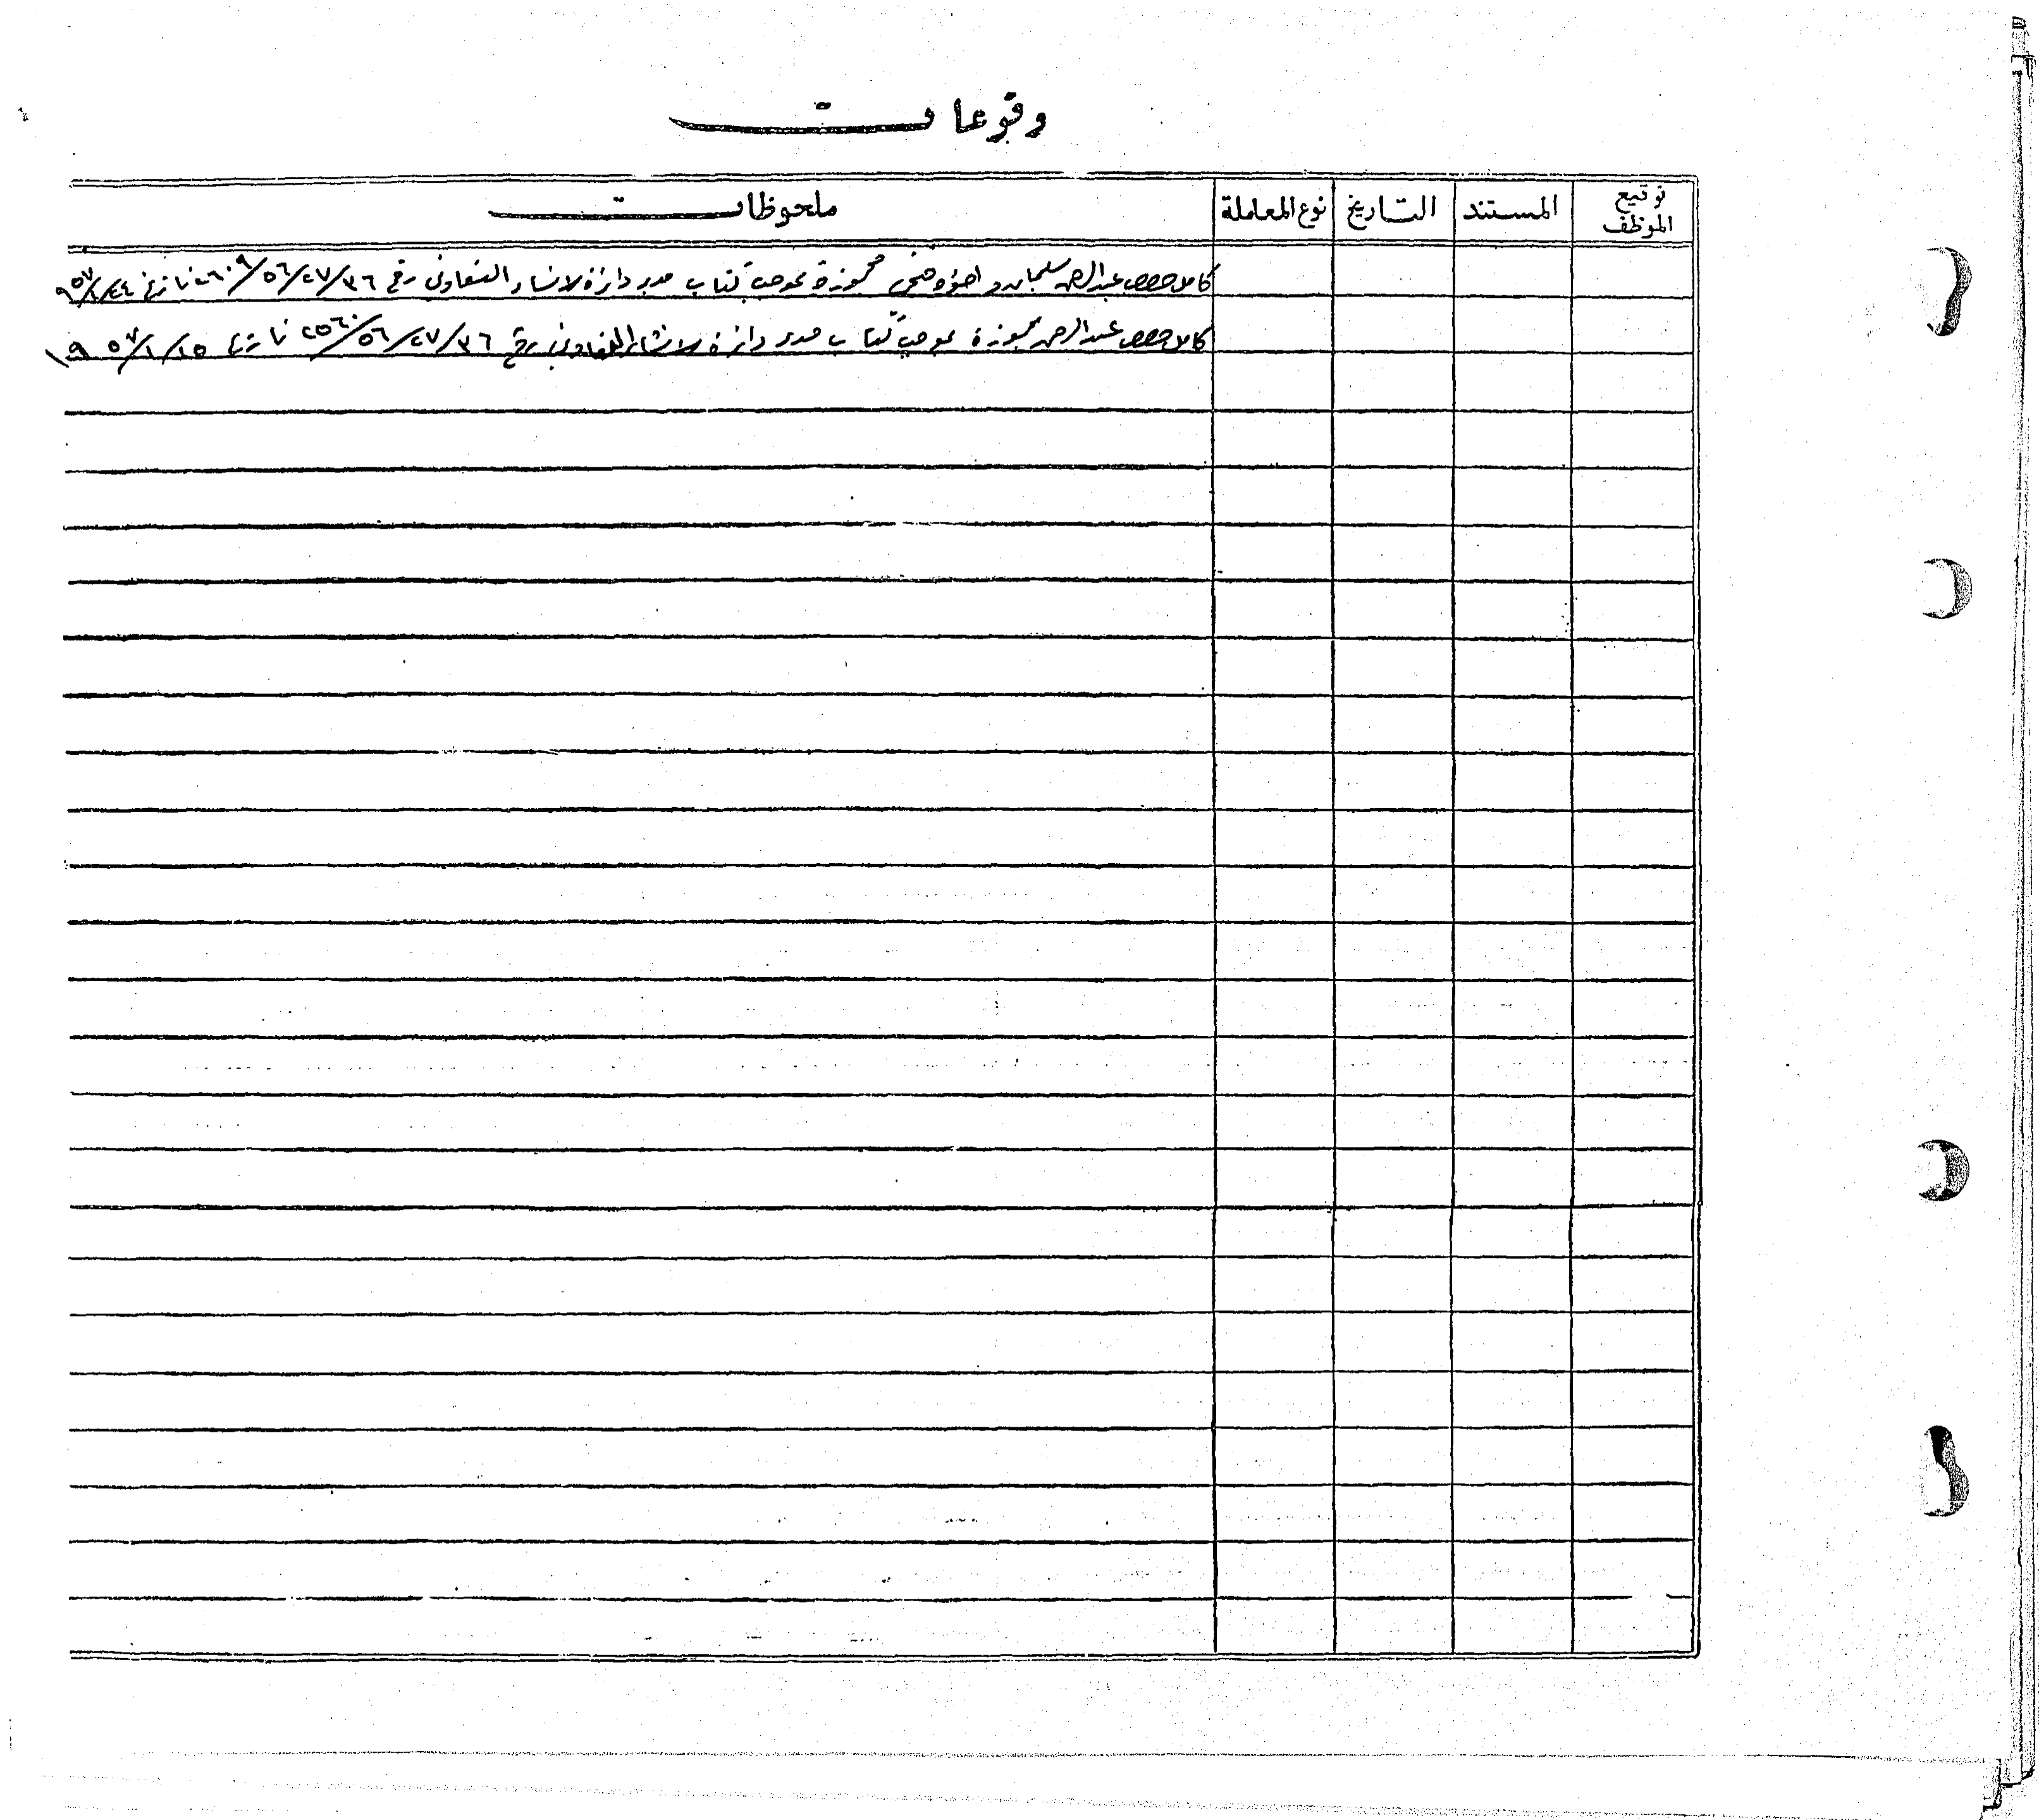 وقوعات
توقيع الموظف
المستند
التاريخ
نوع المعاملة
ملحوظات
كامل حصص عبدالرحمن سليمان و محجوزة بموجب كتاب مدير دائرة الانشاء التعاوني رقم ٣٦/٢٧/٥٦/٢٦٠٩ تاريخ
كامل حصص عبدالرحمن محجوزة بموجب كتاب مدير دائرة الانشاء التعاوني رقم ٣٦/٢٧/٥٦/٢٥٦٠ تاريخ ١٥/١/٩٥٧